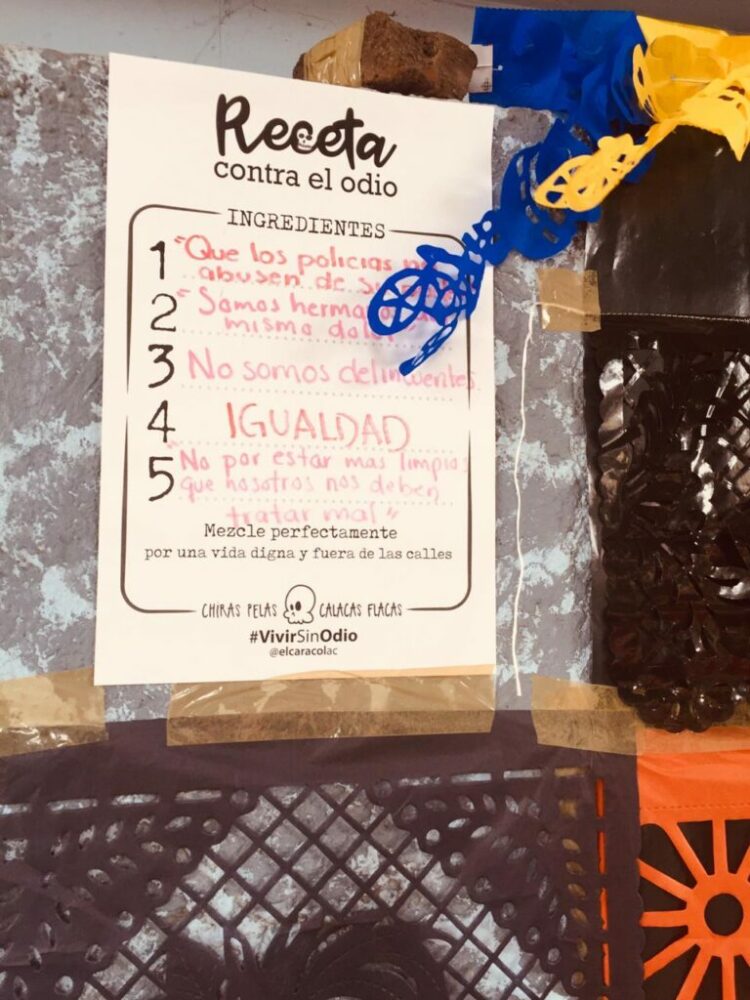 Receta
contra el odio
INGREDIENTES
1 "Que los policias
abusen de
2 "Somos
misma
3 No somos delincuentes.
4 IGUALDAD
5 "No por estar mas limpios
que nosotros nos deben
tratar mal"
Mezcle perfectamente
por una vida digna y fuera de las calles
CHIRAS PELAS CALACAS FLACAS
#VivirSinOdio
@elcaracolac